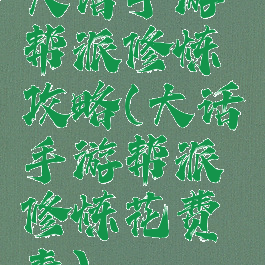 大话手游
帮派修炼
攻略(大话
手游帮派
修炼花费
表)